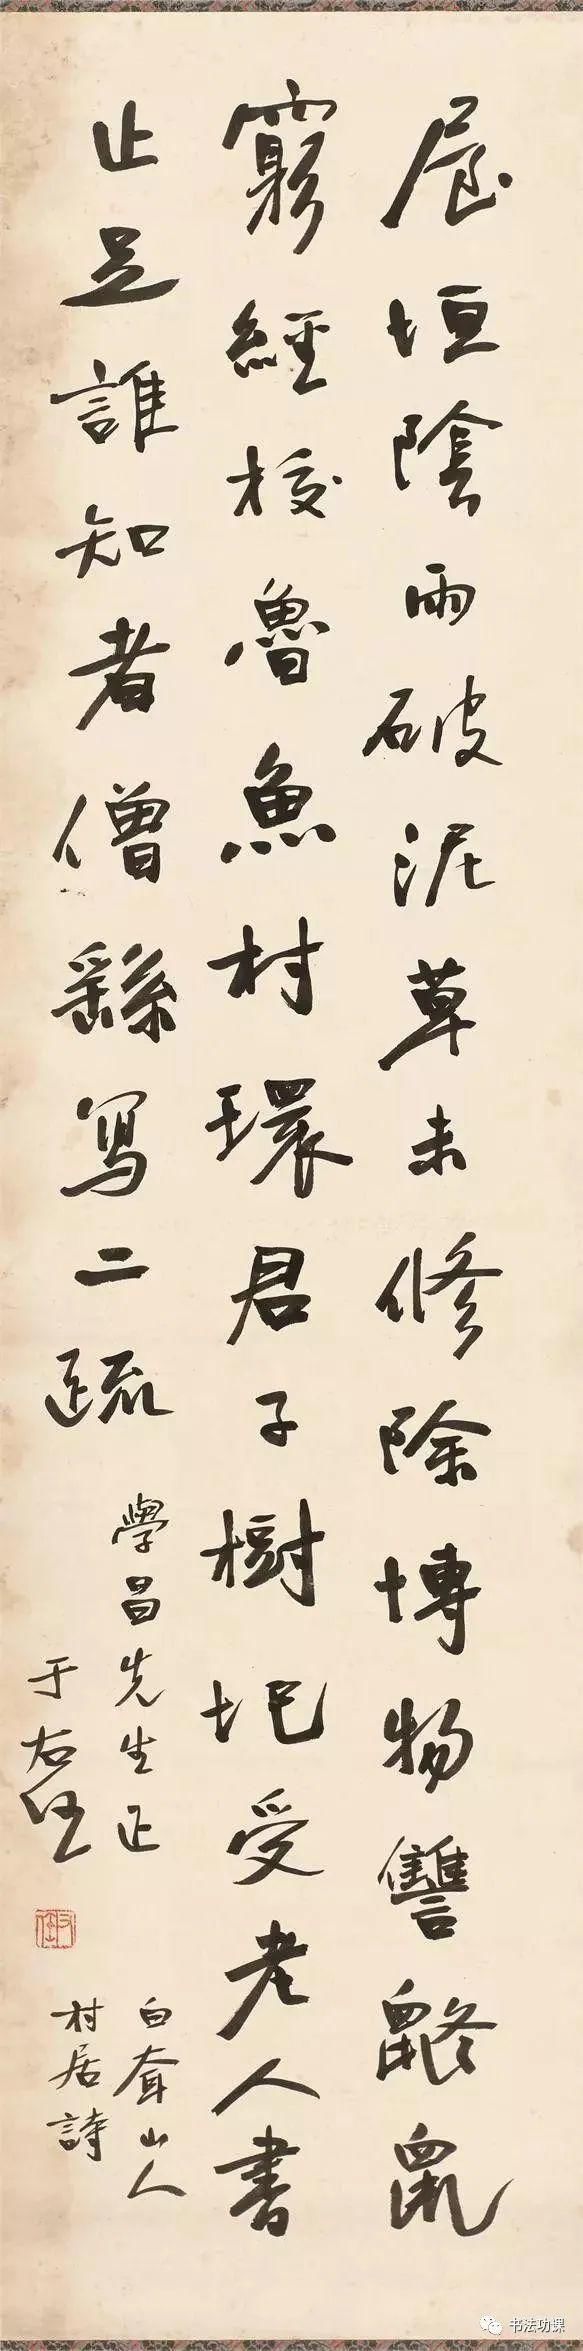 屋垣陰雨破泥草未修除博物讐鼨鼠
窮經校魯魚村環君子樹圯受老人書
止足誰知者僧繇寫二疏
學昌先生正
于右任
右任
白耷山人
村居詩
书法功课